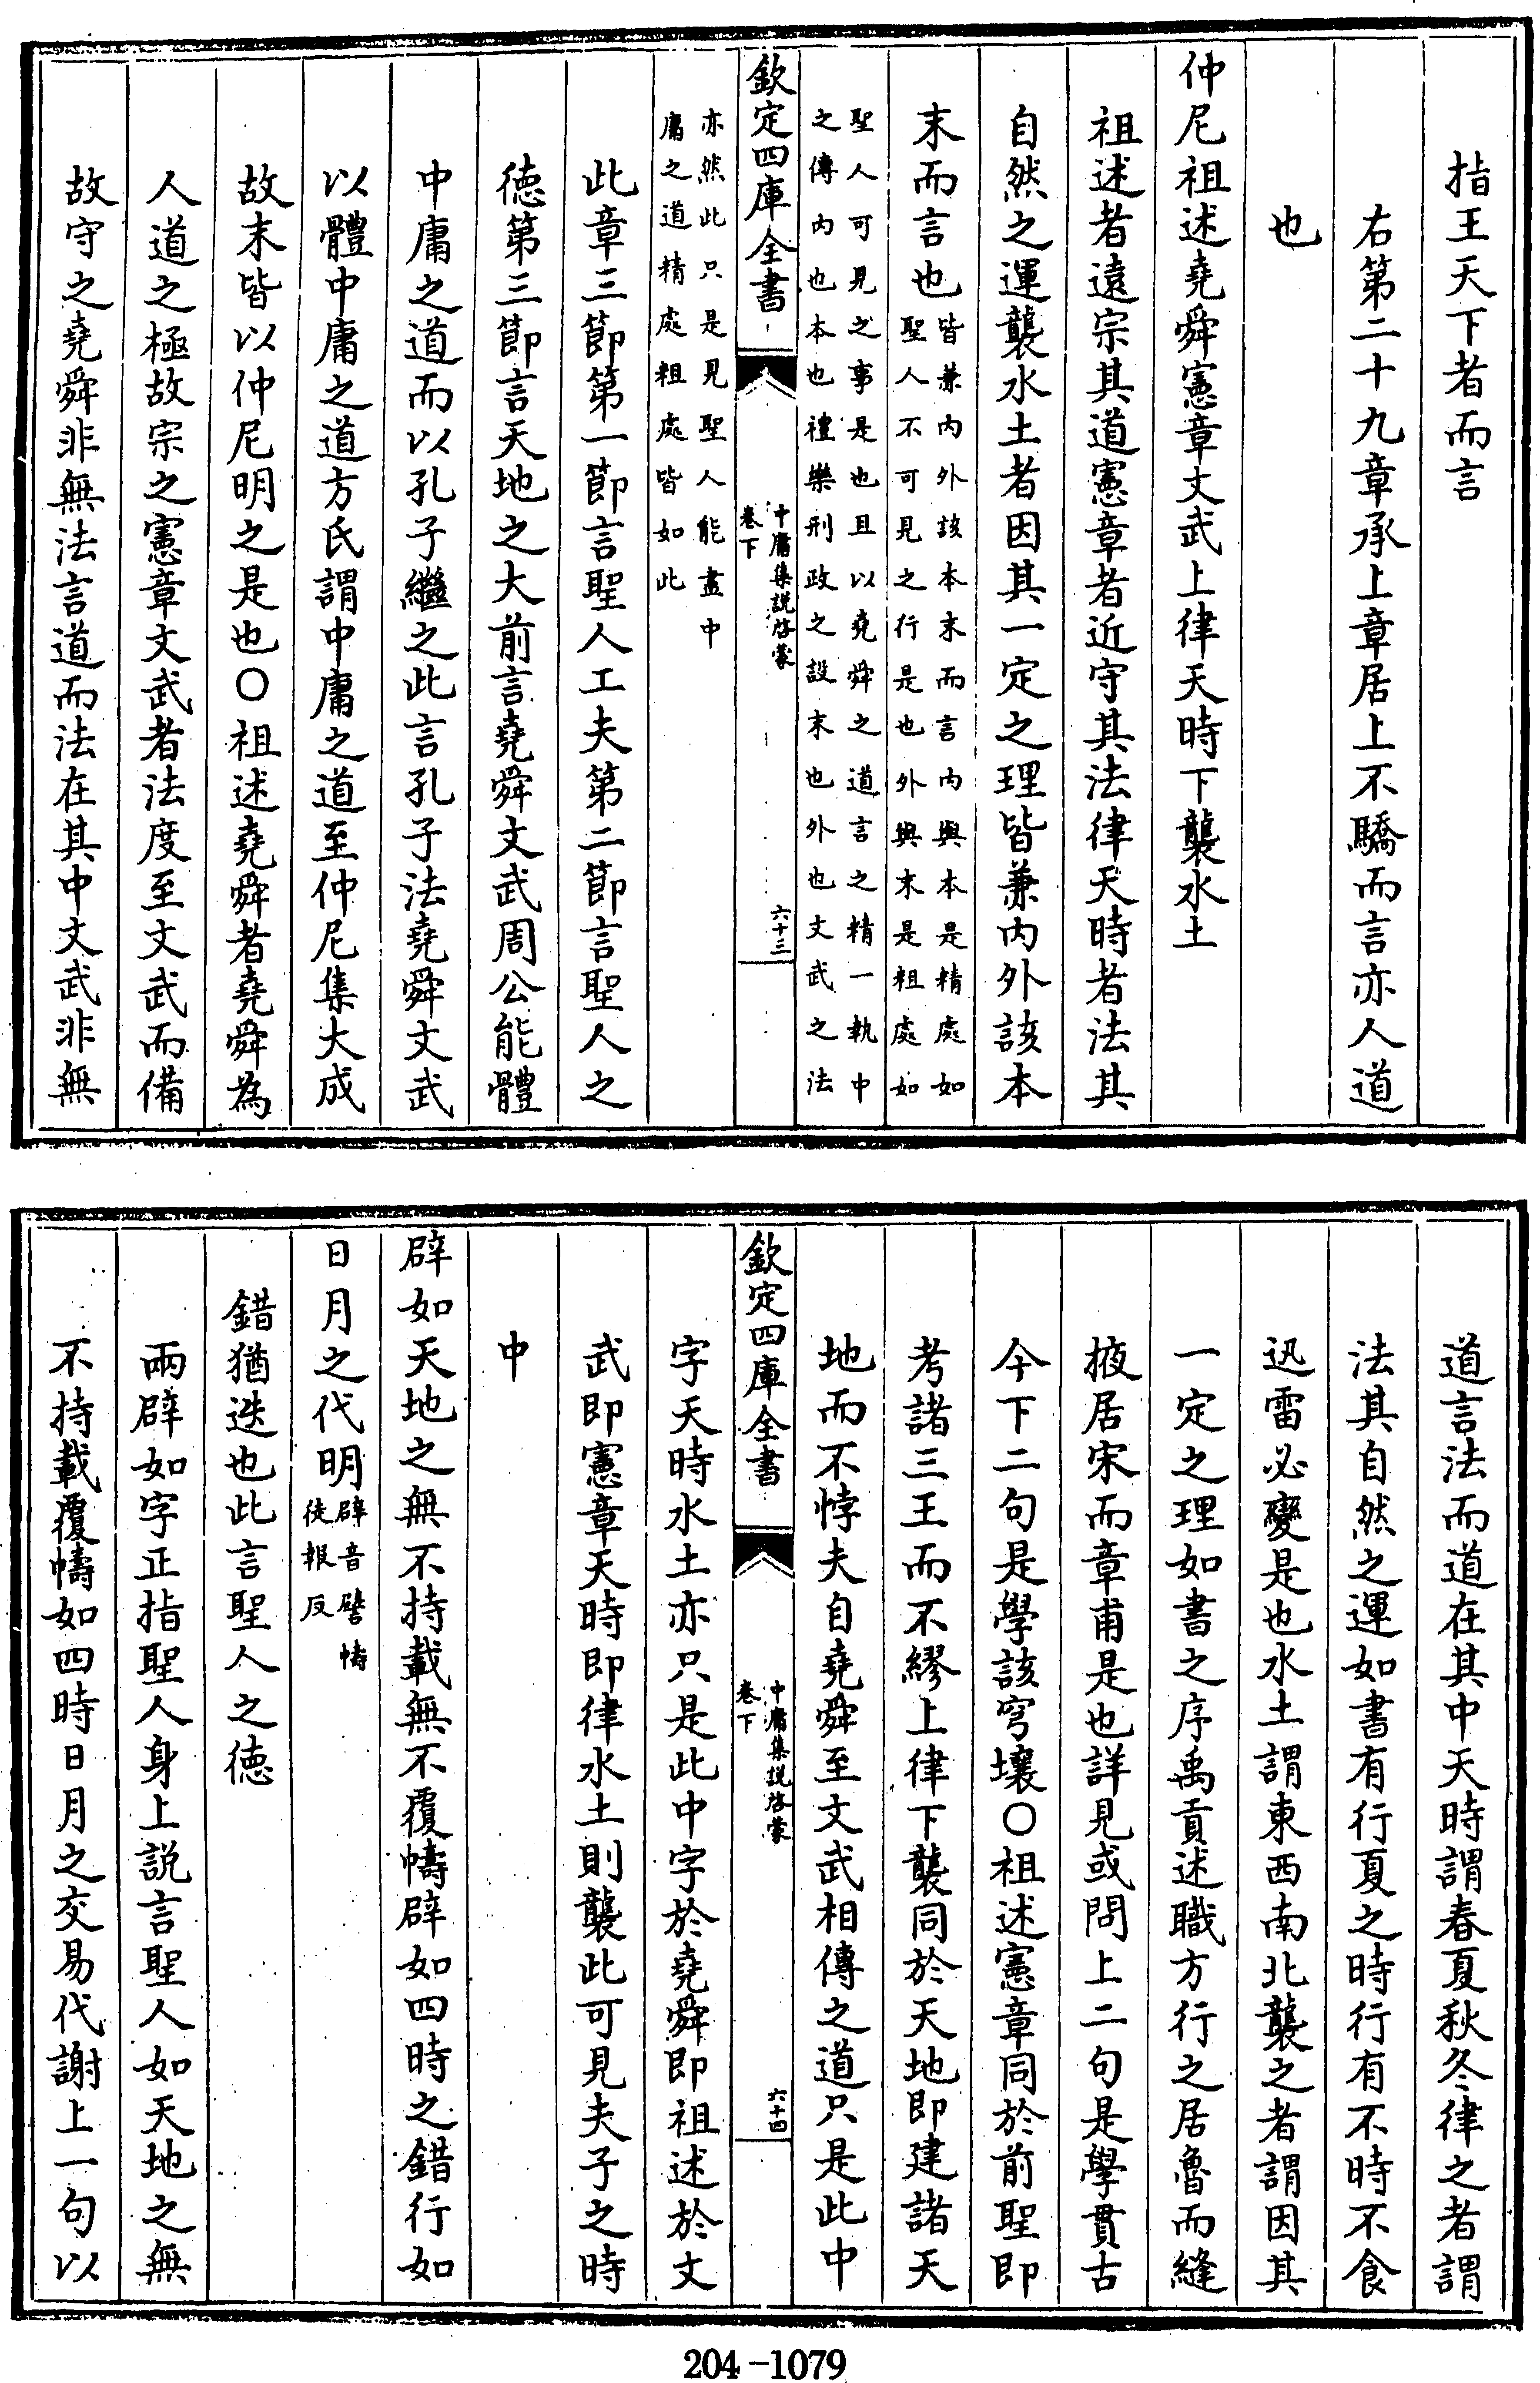 指王天下者而言
右第二十九章承上章居上不驕而言亦人道
也
仲尼祖述堯舜憲章文武上律天時下襲水土
祖述者遠宗其道憲章者近守其法律天時者法其
自然之運襲水土者因其一定之理皆兼内外該本
末而言也皆兼内外該本末而言内與本是精處如
聖人不可見之行是也外與末是粗處如
聖人可見之事是也且以堯舜之道言之精一執中
之傳内也本也禮樂刑政之設末也外也文武之法
欽定四庫全書
中庸集説啓蒙
卷下
六十三
亦然此只是見聖人能盡中
庸之道精處粗處皆如此
此章三節第一節言聖人工夫第二節言聖人之
徳第三節言天地之大前言堯舜文武周公能體
中庸之道而以孔子繼之此言孔子法堯舜文武
以體中庸之道方氏謂中庸之道至仲尼集大成
故末皆以仲尼明之是也〇祖述堯舜者堯舜為
人道之極故宗之憲章文武者法度至文武而備
故守之堯舜非無法言道而法在其中文武非無
道言法而道在其中天時謂春夏秋冬律之者謂
法其自然之運如書有行夏之時行有不時不食
迅雷必變是也水土謂東西南北襲之者謂因其
一定之理如書之序禹貢述職方行之居魯而縫
掖居宋而章甫是也詳見或問上二句是學貫古
今下二句是學該穹壤〇祖述憲章同於前聖即
考諸三王而不繆上律下襲同於天地即建諸天
地而不悖夫自堯舜至文武相傳之道只是此中
欽定四庫全書
中庸集説啓蒙
卷下
六十四
字天時水土亦只是此中字於堯舜即祖述於文
武即憲章天時即律水土則襲此可見夫子之時
中
辟如天地之無不持載無不覆幬辟如四時之錯行如
日月之代明辟音譬幬
徒報反
錯猶迭也此言聖人之徳
兩辟如字正指聖人身上説言聖人如天地之無
不持載覆幬如四時日月之交易代謝上一句以
204-1079